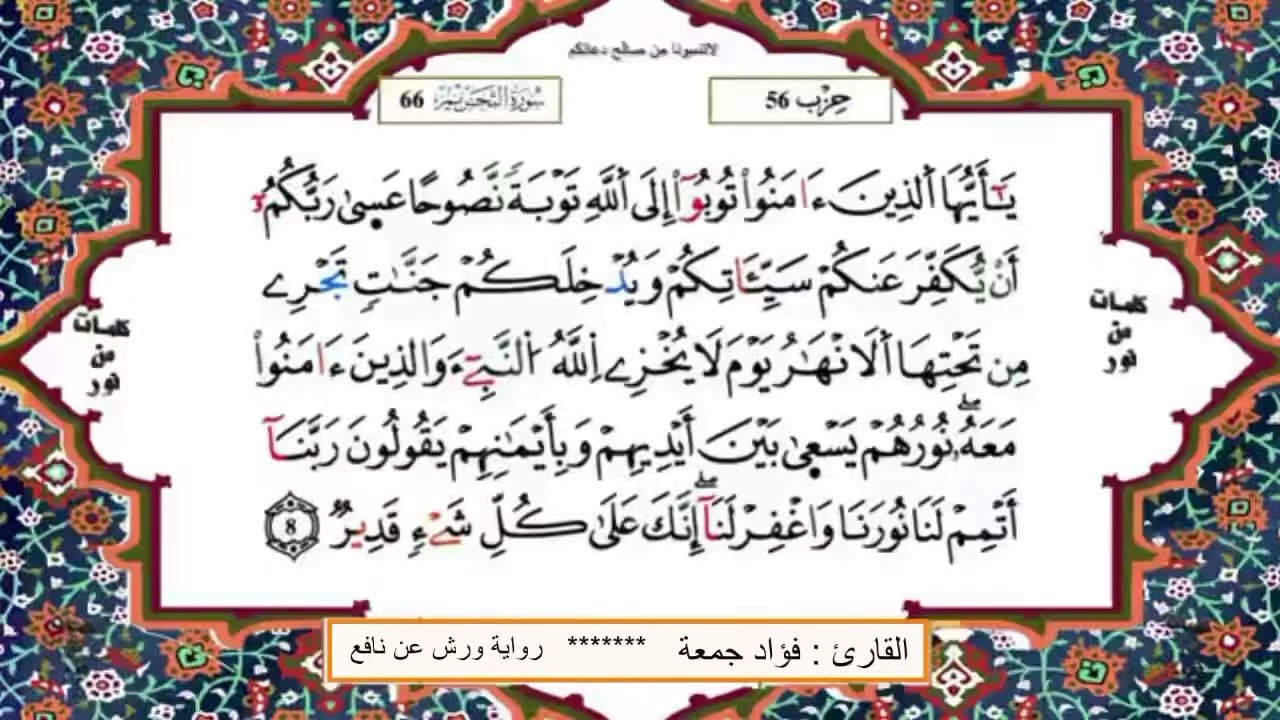 لاتنسونا من صالح دعائكم
حِزْب 56
سُورَةُ التَّحْرِيمِ 66
يَٰٓأَيُّهَا اَ۬لذِينَ ءَامَنُواْ تُوبُوٓاْ إِلَى اَ۬للَّهِ تَوْبَةٗ نَّصُوحًا عَسۭيٰ رَبُّكُمُۥٓ
أَنْ يُّكَفِّرَ عَنكُمْ سَيِّـَٔاتِكُمْ وَيُدْخِلَكُمْ جَنَّٰتٖ تَجْرِے
مِن تَحْتِهَا اَ۬لَانْهَٰرُ يَوْمَ لَا يُخْزِے اِ۬للَّهُ اُ۬لنَّبِيٓءَ وَالذِينَ ءَامَنُواْ
مَعَهُۥۖ نُورُهُمْ يَسْعۭيٰ بَيْنَ أَيْدِيهِمْ وَبِأَيْمَٰنِهِمْ يَقُولُونَ رَبَّنَآ
أَتْمِمْ لَنَا نُورَنَا وَاغْفِرْ لَنَآۖ إِنَّكَ عَلَىٰ كُلِّ شَےْءٖ قَدِيرٞ 8
كلمات
من
نور
كلمات
من
نور
القارئ : فؤاد جمعة ******* رواية ورش عن نافع